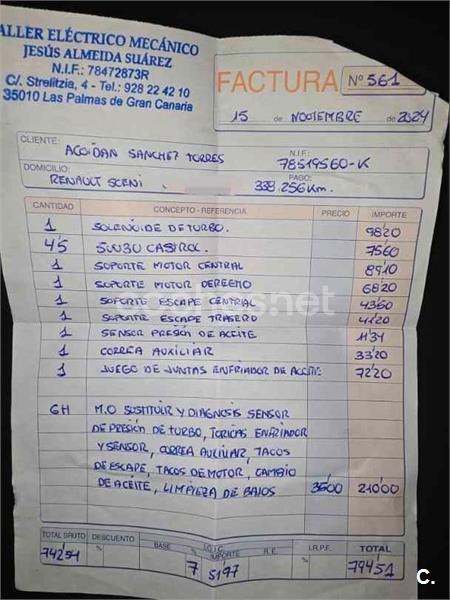 ALLER ELÉCTRICO MECÁNICO
JESÚS ALMEIDA SUÁREZ
N.I.F.: 78472873R
C/. Strelitzia, 4 - Tel.: 928 22 42 10
35010 Las Palmas de Gran Canaria
FACTURA Nº 561
15 de NOVIEMBRE de 2024
CLIENTE: N.I.F.:
ACOIDAN SANCHEZ TORRES 78519560-K
DOMICILIO: PAGO:
RENAULT SCENI. 338.256 Km.
CANTIDAD CONCEPTO - REFERENCIA PRECIO IMPORTE
1 SOLENOIDE DE TURBO. 98'20
4'5 5W30 CASTROL. 75'60
1 SOPORTE MOTOR CENTRAL 89'10
1 SOPORTE MOTOR DERECHO 68'20
1 SOPORTE ESCAPE CENTRAL 43'60
1 SOPORTE ESCAPE TRASERO 41'20
1 SENSOR PRESIÓN DE ACEITE 41'34
1 CORREA AUXILIAR 33'20
1 JUEGO DE JUNTAS ENFRIADOR DE ACEITE 72'20
6H M.O SUSTITUIR Y DIAGNOSIS SENSOR
DE PRESIÓN DE TURBO, TORICAS ENFRIADOR
Y SENSOR, CORREA AUXILIAR, TACOS
DE ESCAPE, TACOS DE MOTOR, CAMBIO
DE ACEITE, LIMPIEZA DE BAJOS 35'00 210'00
TOTAL BRUTO DESCUENTO BASE I.G.I.C. IMPORTE R.E. I.R.P.F. TOTAL
742'54 % 7 % 51'97 % 794'51
C.